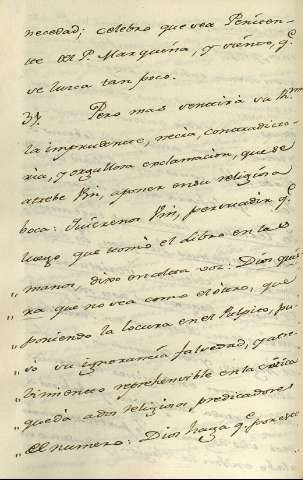 necedad; celebro que sea Peniten-
te del P. Marqueña, y siento, q.e
se luzca tan poco.
37. Pero mas sentirá su Ill.ma
la imprudente, necia, contradicto-
ria, y orgullosa exclamacion, que se
atrebe Vm, a poner en su religiosa
boca: Quierenos Vm, persuadir q.e
luego que tomó el Libro en las
„ manos, dixo en alta voz: Dios quie-
„ ra que no sea como el otro, que
„ poniendo la locura en el Pulpito, pu-
„ so su ignorancia, falsedad, y atre-
„ bimiento reprehensible en la critica
„ que dá a dos religiosos predicadores
„ el numero: Dios haga q.e por esta